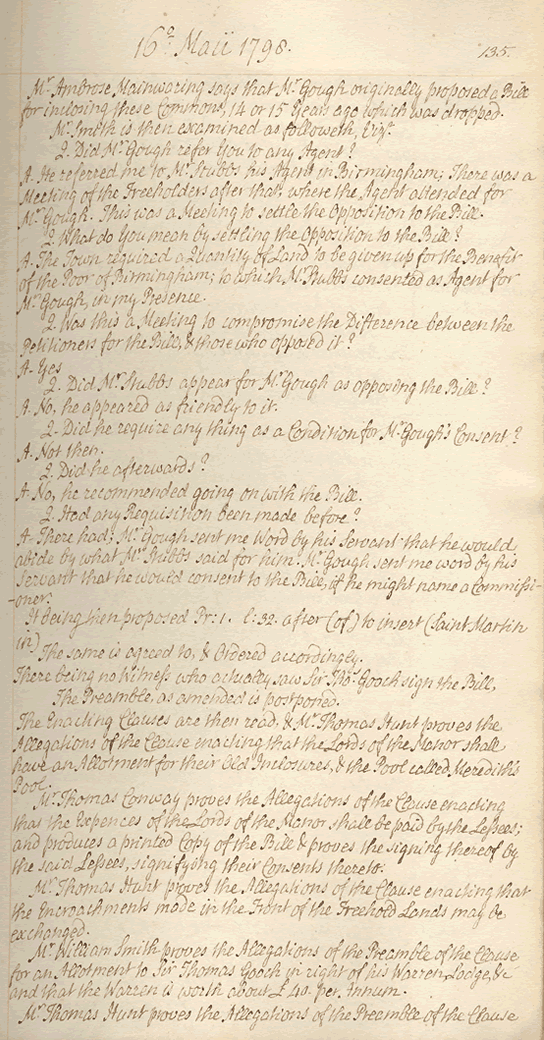 16º Maii 1798.
135.
Mr. Ambrose Mainwaring says that Mr. Gough originally proposed a Bill
for inclosing these Commons, 14 or 15 Years ago which was dropped.
Mr. Smith is then examined as followeth, Vizt.
Q. Did Mr. Gough refer You to any Agent?
A. He referred me to Mr. Stubbs his Agent in Birmingham; There was a
Meeting of the Freeholders after that where the Agent attended for
Mr. Gough. This was a Meeting to settle the Opposition to the Bill.
Q. What do You mean by settling the Opposition to the Bill?
A. The Town required a Quantity of Land to be given up for the Benefit
of the Poor of Birmingham; to which Mr. Stubbs consented as Agent for
Mr. Gough, in my Presence.
Q. Was this a Meeting to compromise the Difference between the
Petitioners for the Bill, & those who opposed it?
A. Yes
Q. Did Mr. Stubbs appear for Mr. Gough as opposing the Bill?
A. No, he appeared as friendly to it.
Q. Did he require any thing as a Condition for Mr. Gough's Consent?
A. Not then.
Q. Did he afterwards?
A. No, he recommended going on with the Bill.
Q. Had any Requisition been made before?
A. There had; Mr. Gough sent me Word by his Servant that he would
abide by what Mr. Stubbs said for him. Mr. Gough sent me word by his
Servant that he would consent to the Bill, if he might name a Commissi-
-oner.
It being then proposed Pr: 1. l: 32. after (of) to insert (Saint Martin
in)
The same is agreed to, & Ordered accordingly.
There being no Witness who actually saw Sir Thos. Gooch sign the Bill,
The Preamble, as amended is postponed.
The Enacting Clauses are then read, & Mr. Thomas Hunt proves the
Allegations of the Clause enacting that the Lords of the Manor shall
have an Allotment for their Old Inclosures, & the Pool called Meredith's
Pool.
Mr. Thomas Conway proves the Allegations of the Clause enacting
that the Expences of the Lords of the Manor shall be paid by the Lessees;
and produces a printed Copy of the Bill & proves the signing thereof by
the said Lessees, signifying their Consents thereto.
Mr. Thomas Hunt proves the Allegations of the Clause enacting that
the Encroachments made in the Front of the Freehold Lands may be
exchanged.
Mr. William Smith proves the Allegations of the Preamble of the Clause
for an Allotment to Sir Thomas Gooch in right of his Warren, Lodge, &c
and that the Warren is worth about £40. per Annum.
Mr. Thomas Hunt proves the Allegations of the Preamble of the Clause